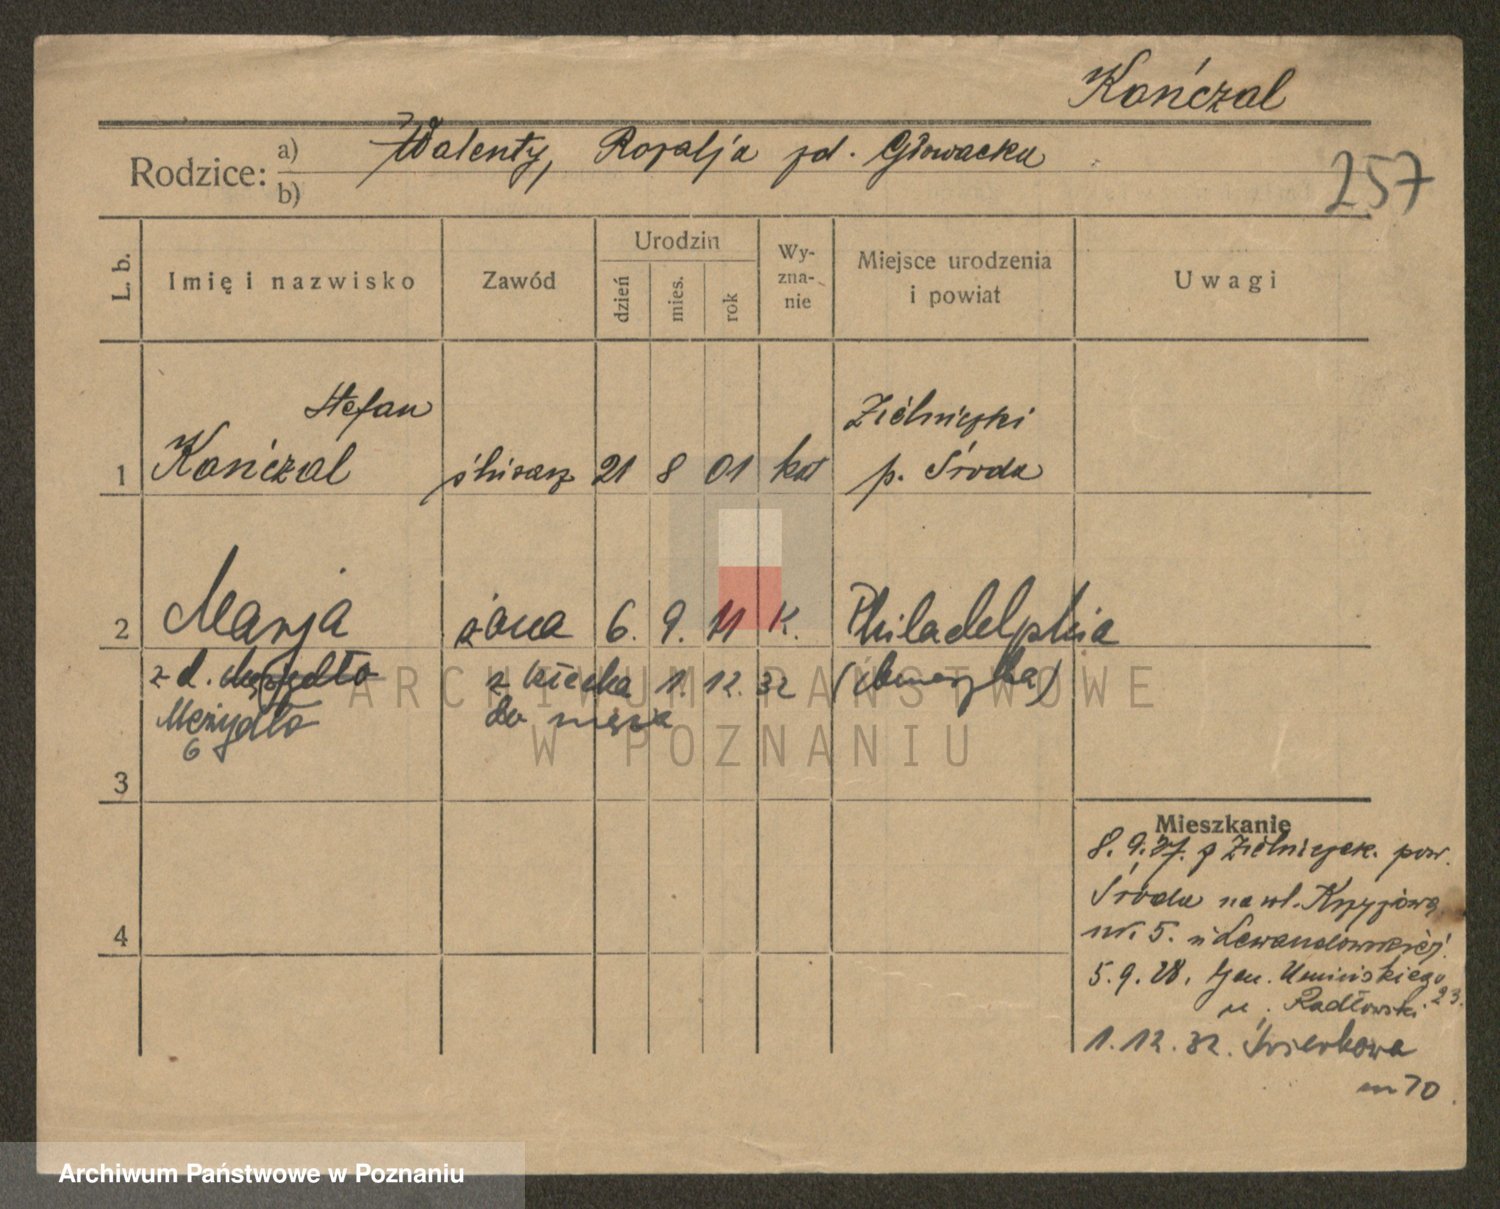 Kańczal
Rodzice: a) Walenty, Rozalja zd. Głowacka
b)
257
L. b. Imię i nazwisko Zawód Urodzin dzień mies. rok Wyznanie Miejsce urodzenia i powiat Uwagi
Stefan Zielniczki
1 Kańczal ślusarz 21 8 01 kat p. Środa
2 Marja żona 6. 9. 11 K. Philadelphia
z d. z Kłecka 1. 12. 32 (Ameryka)
Meżydło do męża
6
3
4
Mieszkanie
8. 9. 27. z Zielniczek. pow.
Środa na ul. Krzyżową
nr. 5. u Lewandowskiej.
5. 9. 28. Gen. Umińskiego
23.
u. Radłowski
1. 12. 32. Świerkowa
m 70.
ARCHIWUM PAŃSTWOWE
W POZNANIU
Archiwum Państwowe w Poznaniu